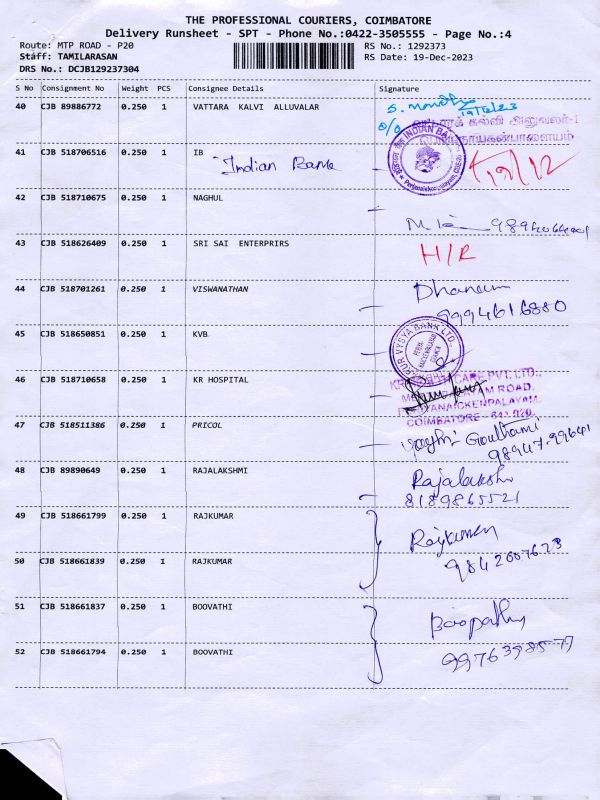 THE PROFESSIONAL COURIERS, COIMBATORE
Delivery Runsheet - SPT - Phone No.:0422-3505555 - Page No.:4
Route: MTP ROAD - P20
Staff: TAMILARASAN
DRS No.: DCJB129237304
RS No.: 1292373
RS Date: 19-Dec-2023
S No Consignment No Weight PCS Consignee Details Signature
40 CJB 89886772 0.250 1 VATTARA KALVI ALLUVALAR
41 CJB 518706516 0.250 1 IB
Indian Bank
INDIAN BANK
19/12
42 CJB 518710675 0.250 1 NAGHUL
43 CJB 518626409 0.250 1 SRI SAI ENTERPRIRS H/R
44 CJB 518701261 0.250 1 VISWANATHAN Dhanam
9994616880
45 CJB 518650851 0.250 1 KVB
KARUR VYSYA BANK LTD.
46 CJB 518710658 0.250 1 KR HOSPITAL
CARE PVT. LTD.,
ROAD,
COIMBATORE - 641 020.
47 CJB 518511386 0.250 1 PRICOL Gouthami
48 CJB 89890649 0.250 1 RAJALAKSHMI Rajalakshmi
8189865521
49 CJB 518661799 0.250 1 RAJKUMAR Rajkumar
50 CJB 518661839 0.250 1 RAJKUMAR 9842607623
51 CJB 518661837 0.250 1 BOOVATHI Boopathy
52 CJB 518661794 0.250 1 BOOVATHI 9976398577